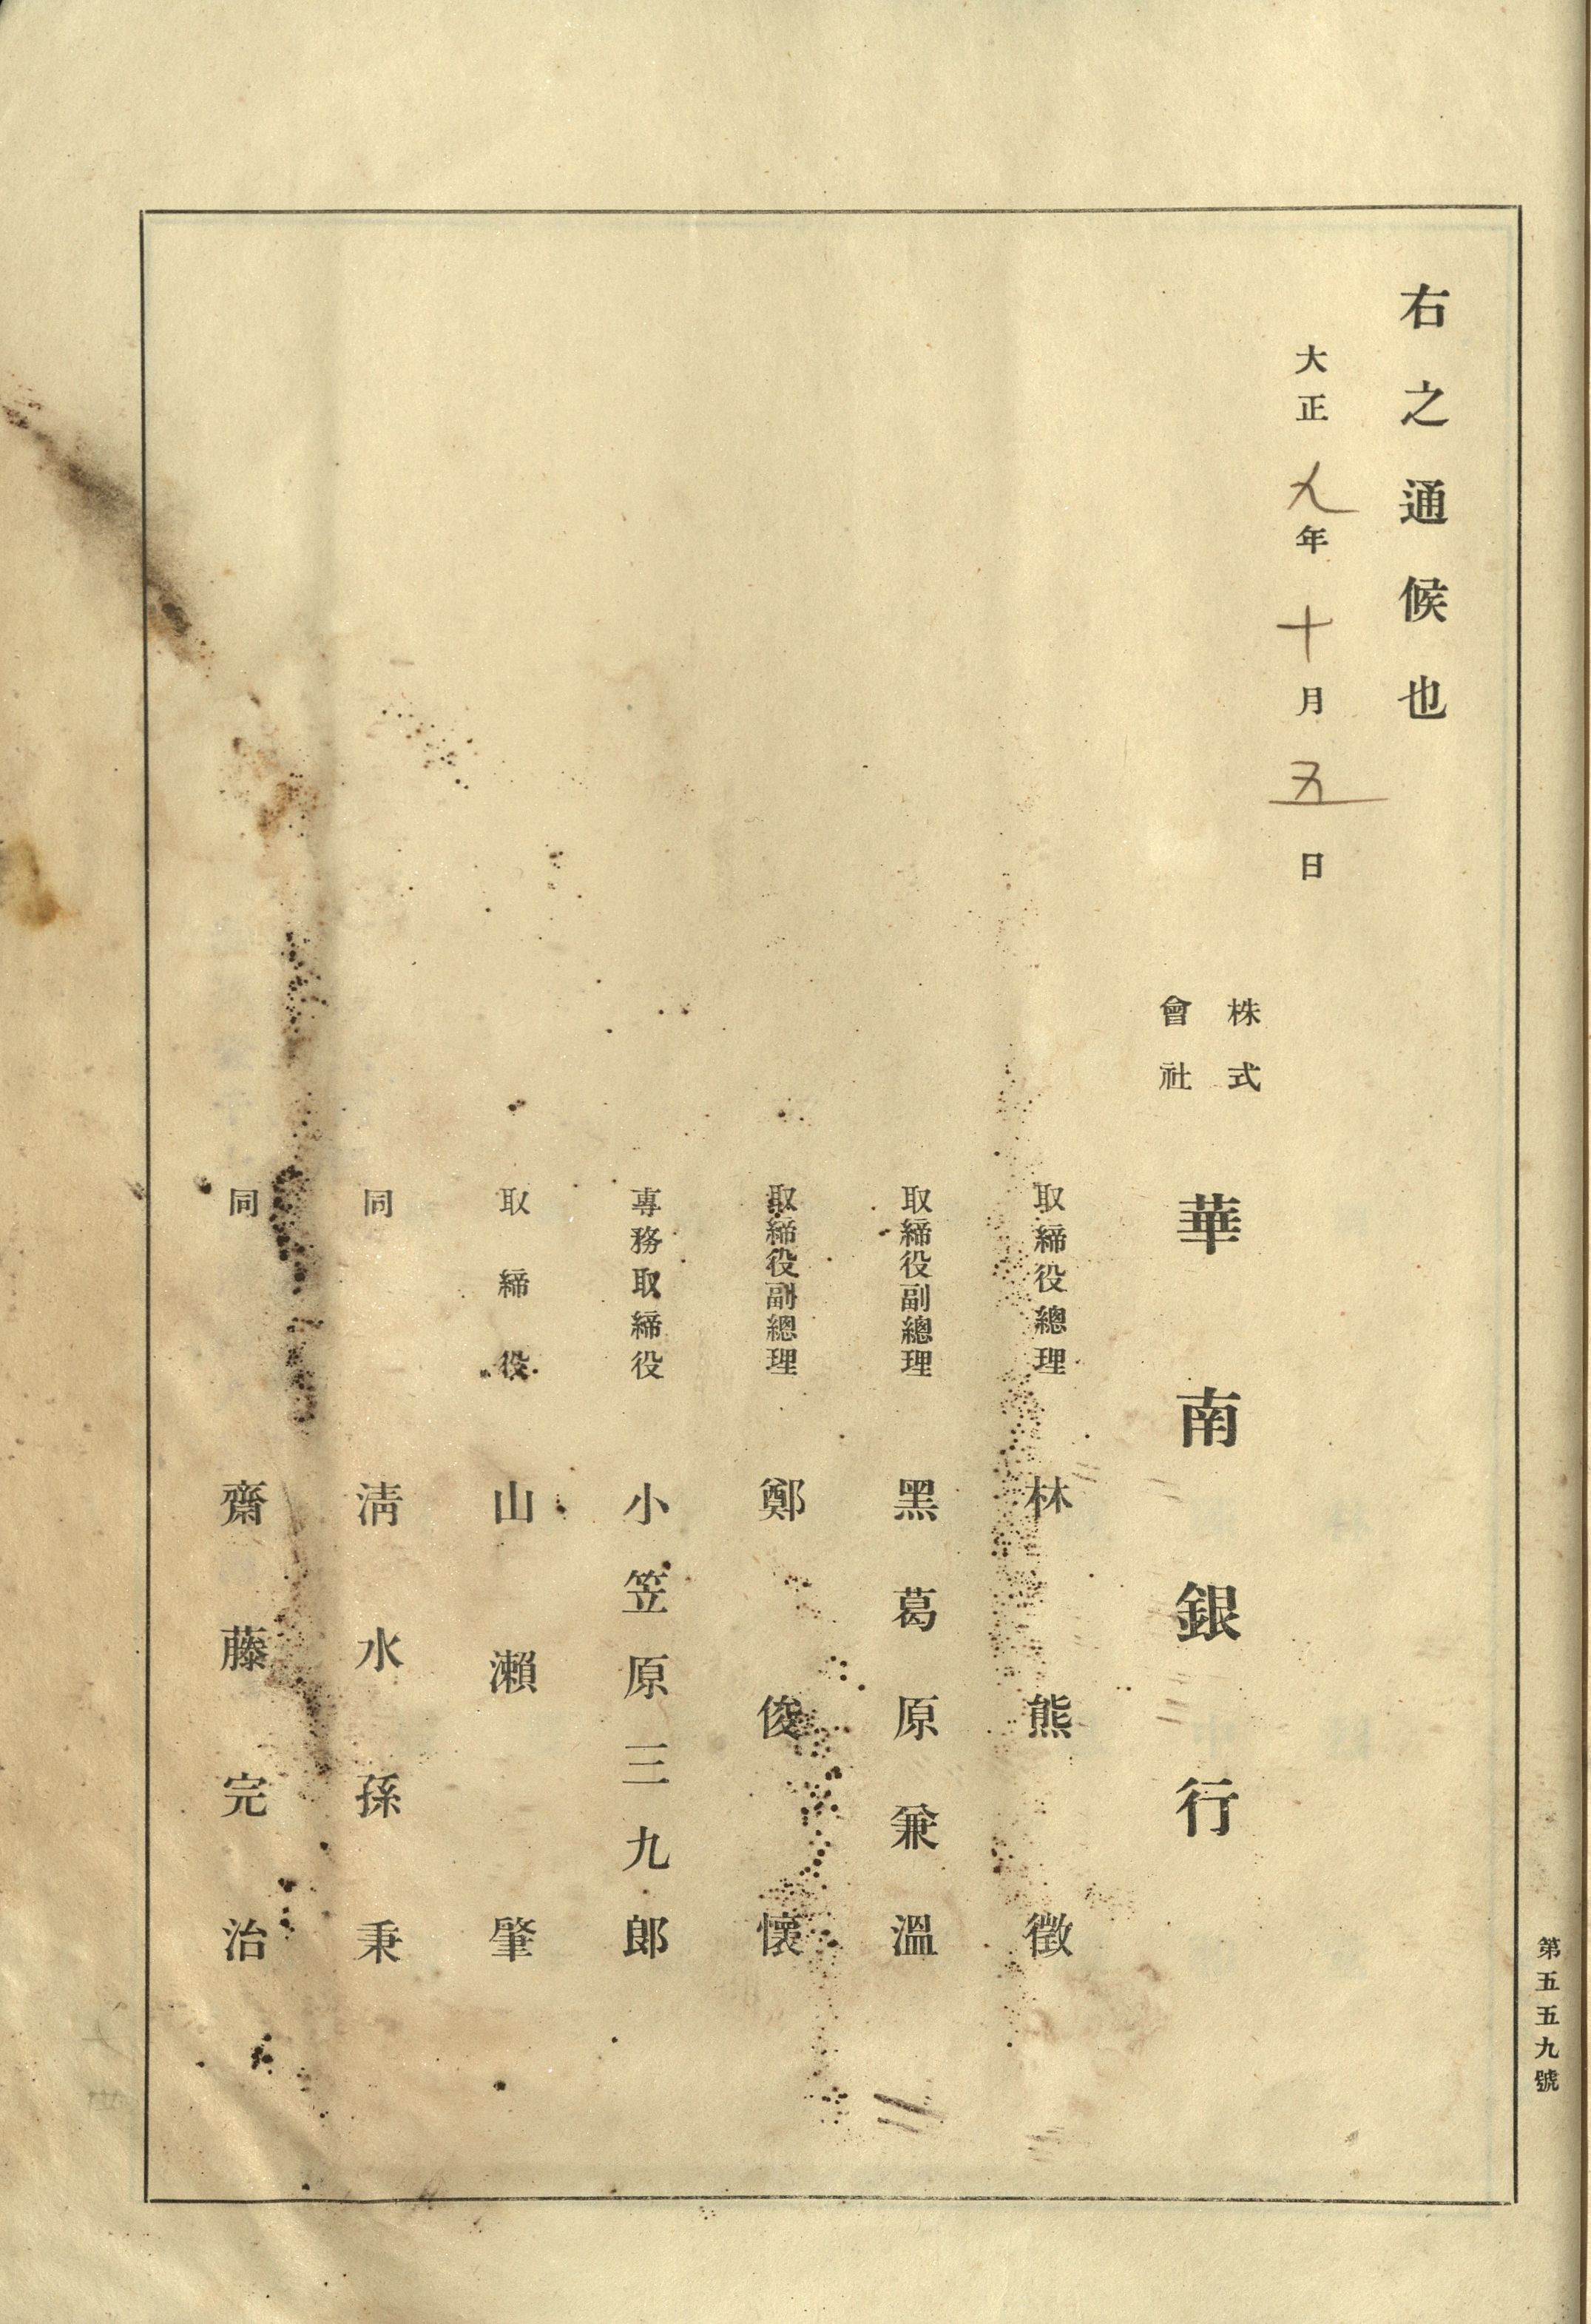 右之通候也
大正九年十月五日
株式會社
華南銀行
取締役總理 林熊徵
取締役副總理 黑葛原兼溫
取締役副總理 鄭俊懷
專務取締役 小笠原三九郎
取締役 山瀨肇
同 淸水孫秉
同 齋藤完治
第五五九號